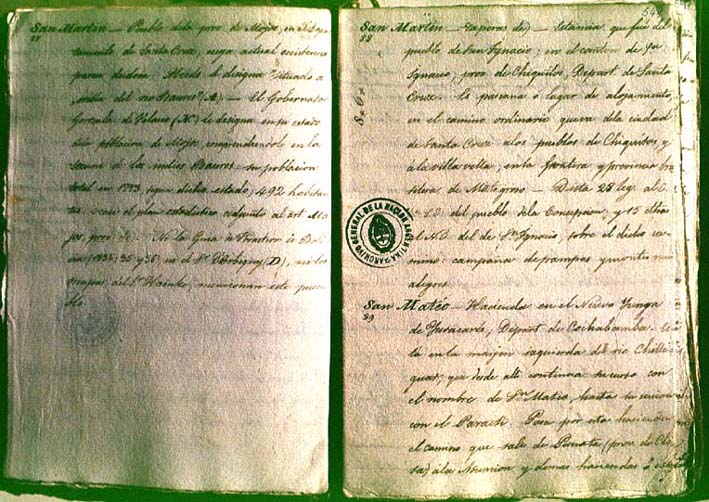 San Martin - Pueblo de la prov. de Mojos, en el Depar-
tamento de Santa Cruz, cuya actual existencia
parece dudosa. Alcedo le designa "situado a
orilla del rio Baures" (A) - El Gobernador
Gonzalo de Velasco le designa en su estado
de la poblacion de Mojos, comprendiendole en la
de los indios Baures - su poblacion
total en 1793, segun dicho estado, 492 habitan-
tes: vease el plan estadistico adjunto al art. Mo-
jos, prov. de) - Ni la Guia de Forasteros de Boli-
via (1835, 35 y 36) ni el Sr. D'Orbigny (D), ni los
mapas del Sr. Haenke, mencionan este pue-
blo
San Martin - taperas de) - Estancia que fue del
88
pueblo de San Ignacio; en el canton de San
Ignacio, prov. de Chiquitos, Depart. de Santa
Cruz. Es pascana o lugar de alojamiento,
en el camino ordinario que va de la ciudad
de Santa Cruz a los pueblos de Chiquitos, y
a la villa vella, en la frontera y provincia bra-
silera de Matogroso - Dista 28 leg. al
del pueblo de la Concepcion, y 15 
el N.O. del de Sn. Ignacio, sobre el dicho ca-
mino: campaña de pampas y montes mui
alegres.
ARCHIVO GENERAL DE LA NACION ARGENTINA
San Mateo - Hacienda en el Nuevo Yunga
89
de Yuracares, Depart. de Cochabamba. Es-
ta en la margen izquierda del rio
que desde alli continua su curso con
el nombre de Sn. Mateo, hasta su union
con el Paracti. Pasa por esta hacienda
el camino que sale de Punata (prov. de Cli-
sa) a la Asuncion y demas haciendas